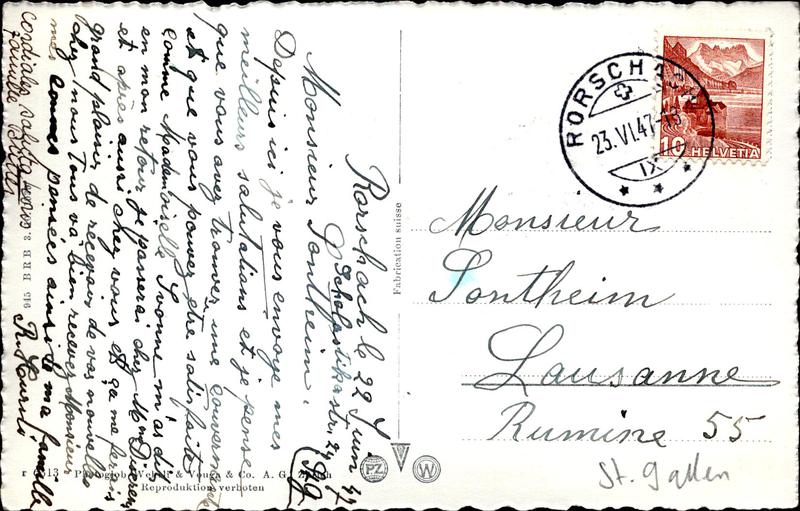 Rorschach le 22 Juin 47
Scholastikastr. 24
Monsieur Sontheim.
Depuis ici je vous envoye mes
meilleurs salutations et je pense
que vous avez trouver une
et que vous pouvez être satisfaite
comme Mademoiselle Yvonne m'as dit
en mon retour je passerai chez M.
et après aussi chez vous et ça me
grand plaisir de recevoir de vos nouvelle
chez nous tous va bien recevez Monsieur
mes bonnes pensées ainsi de ma famille
Cordiales salutations
famille
Fabrication suisse
945 BRB 3.
Photoglob-Wehrli & Vouga & Co. A. G. Zürich
Reproduktion verboten
PZ
W
RORSCHACH
23.VI.47
IX
10 HELVETIA
Monsieur
Sontheim
Lausanne
Rumine 55
St. Gallen